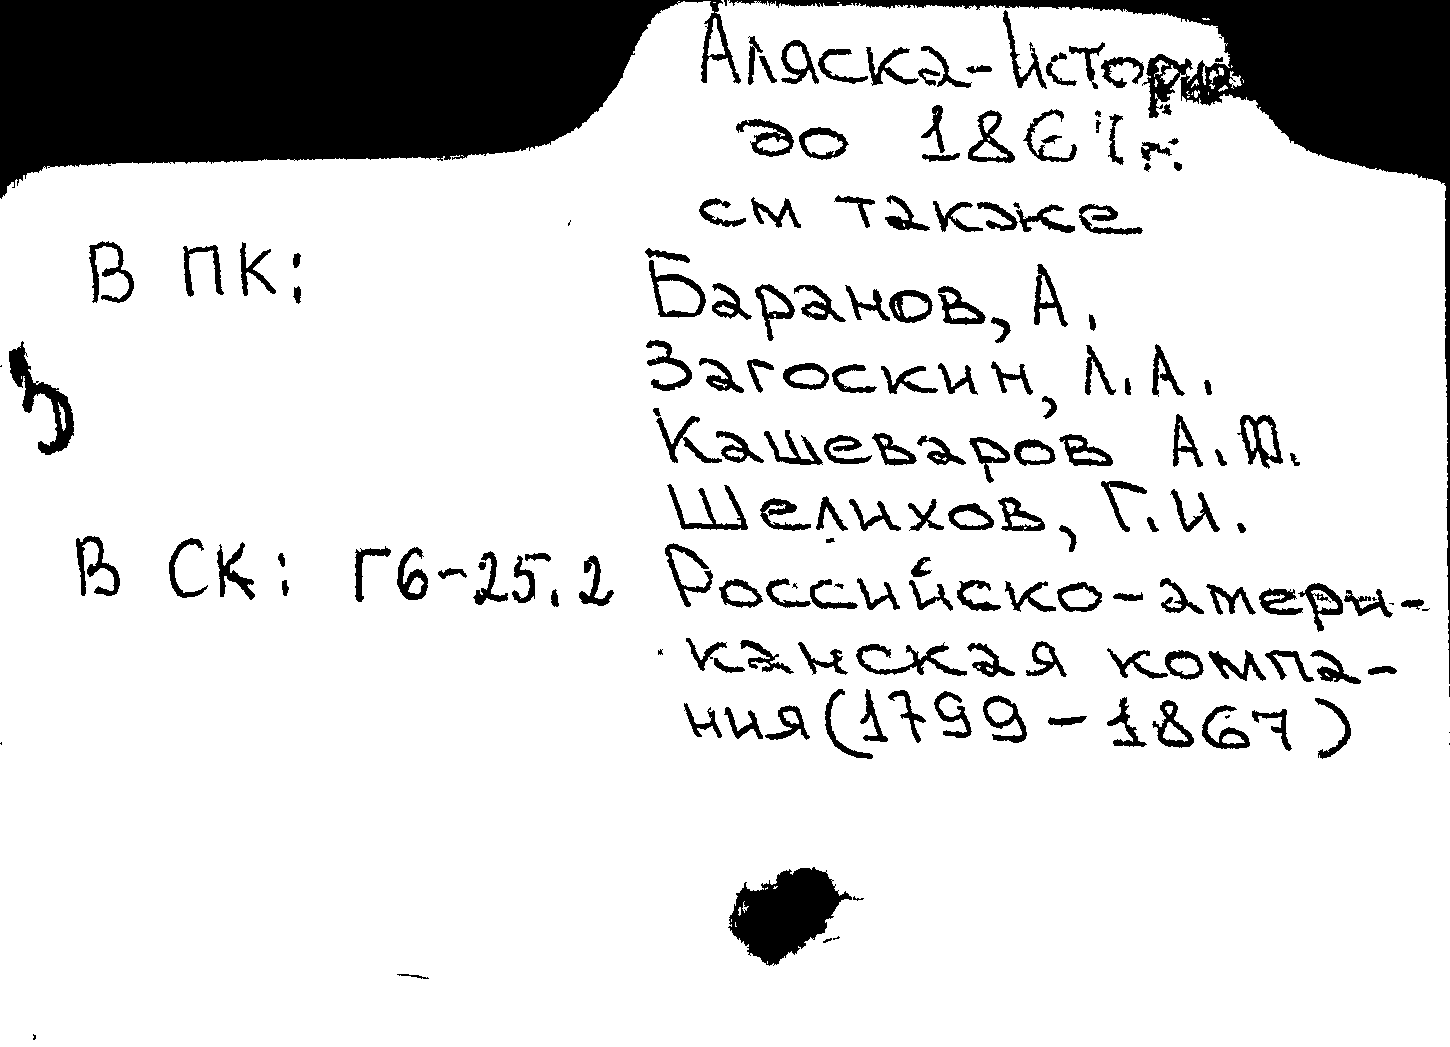 Аляска-История
до 1867г.
см также
В ПК: Баранов, А.
Загоскин, Л.А.
Кашеваров А.Ф.
Шелихов, Г.И.
В СК: Г6-25.2 Российско-амери-
канская компа-
ния (1799-1867)